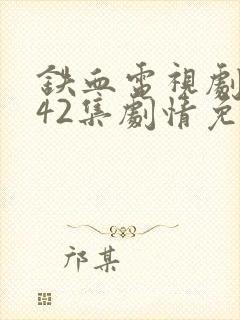 鉄血電視劇
42集劇情免
邝某